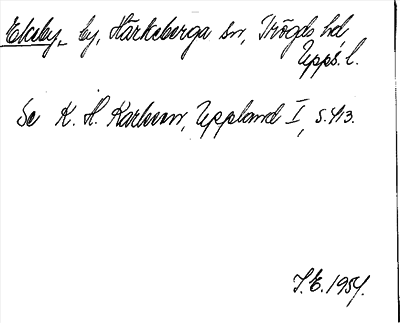 Ekeby, by, Härkeberga sn, Trögds hd
Upps. l.
Se K. H. Karlsson, Uppland I, s. 413.
S.E. 1954.